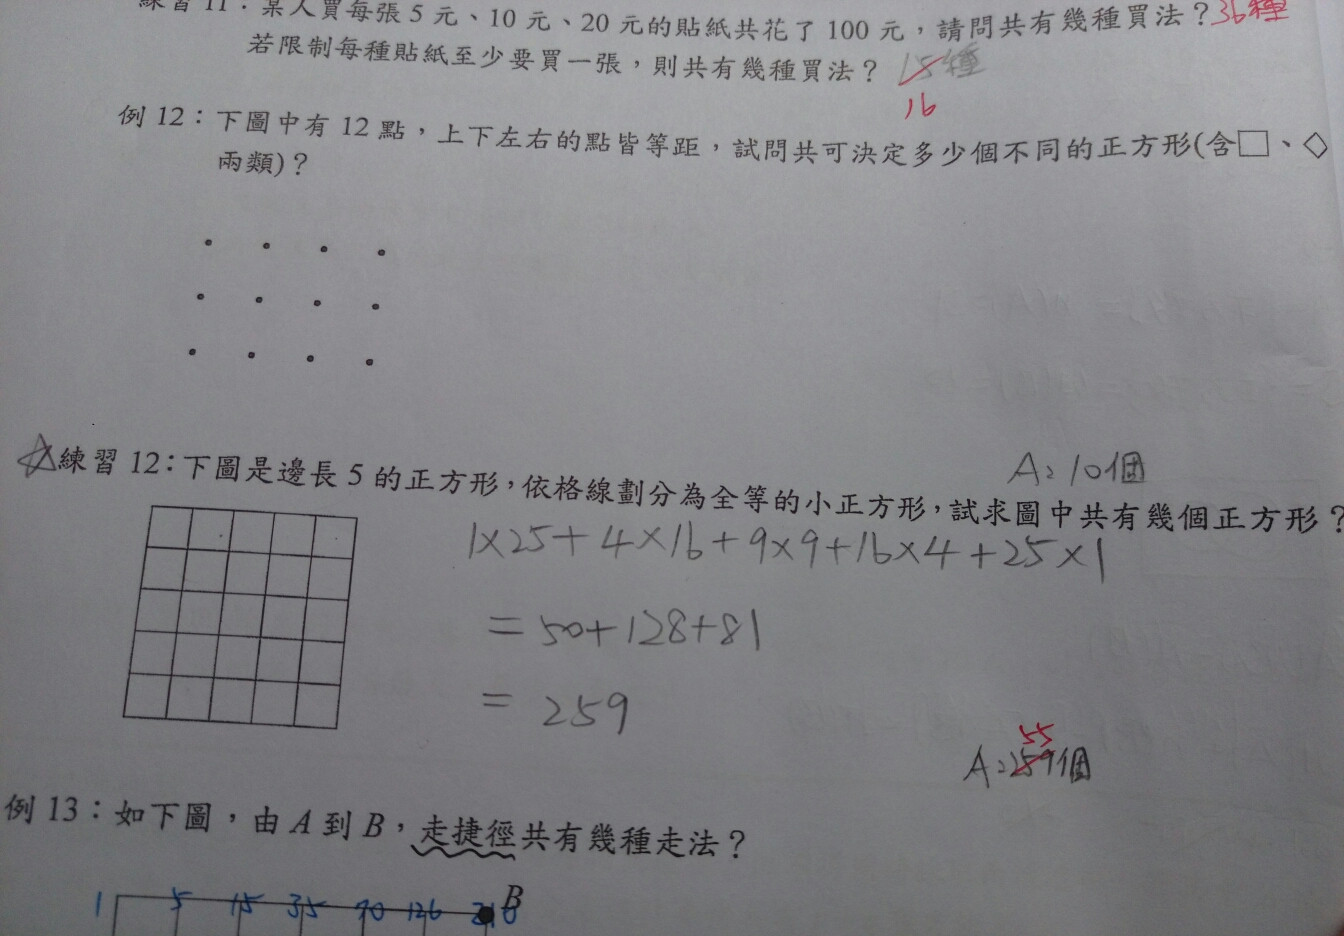 練習 11：某人買每張 5 元、10 元、20 元的貼紙共花了 100 元，請問共有幾種買法？36種
若限制每種貼紙至少要買一張，則共有幾種買法？ 15種
16
例 12：下圖中有 12 點，上下左右的點皆等距，試問共可決定多少個不同的正方形(含□、◇
兩類)？
A：10個
☆練習 12：下圖是邊長 5 的正方形，依格線劃分為全等的小正方形，試求圖中共有幾個正方形？
1×25+4×16+9×9+16×4+25×1
=50+128+81
= 259
55
A：259個
例 13：如下圖，由 A 到 B，走捷徑共有幾種走法？
B
1 5 15 35 70 126 210